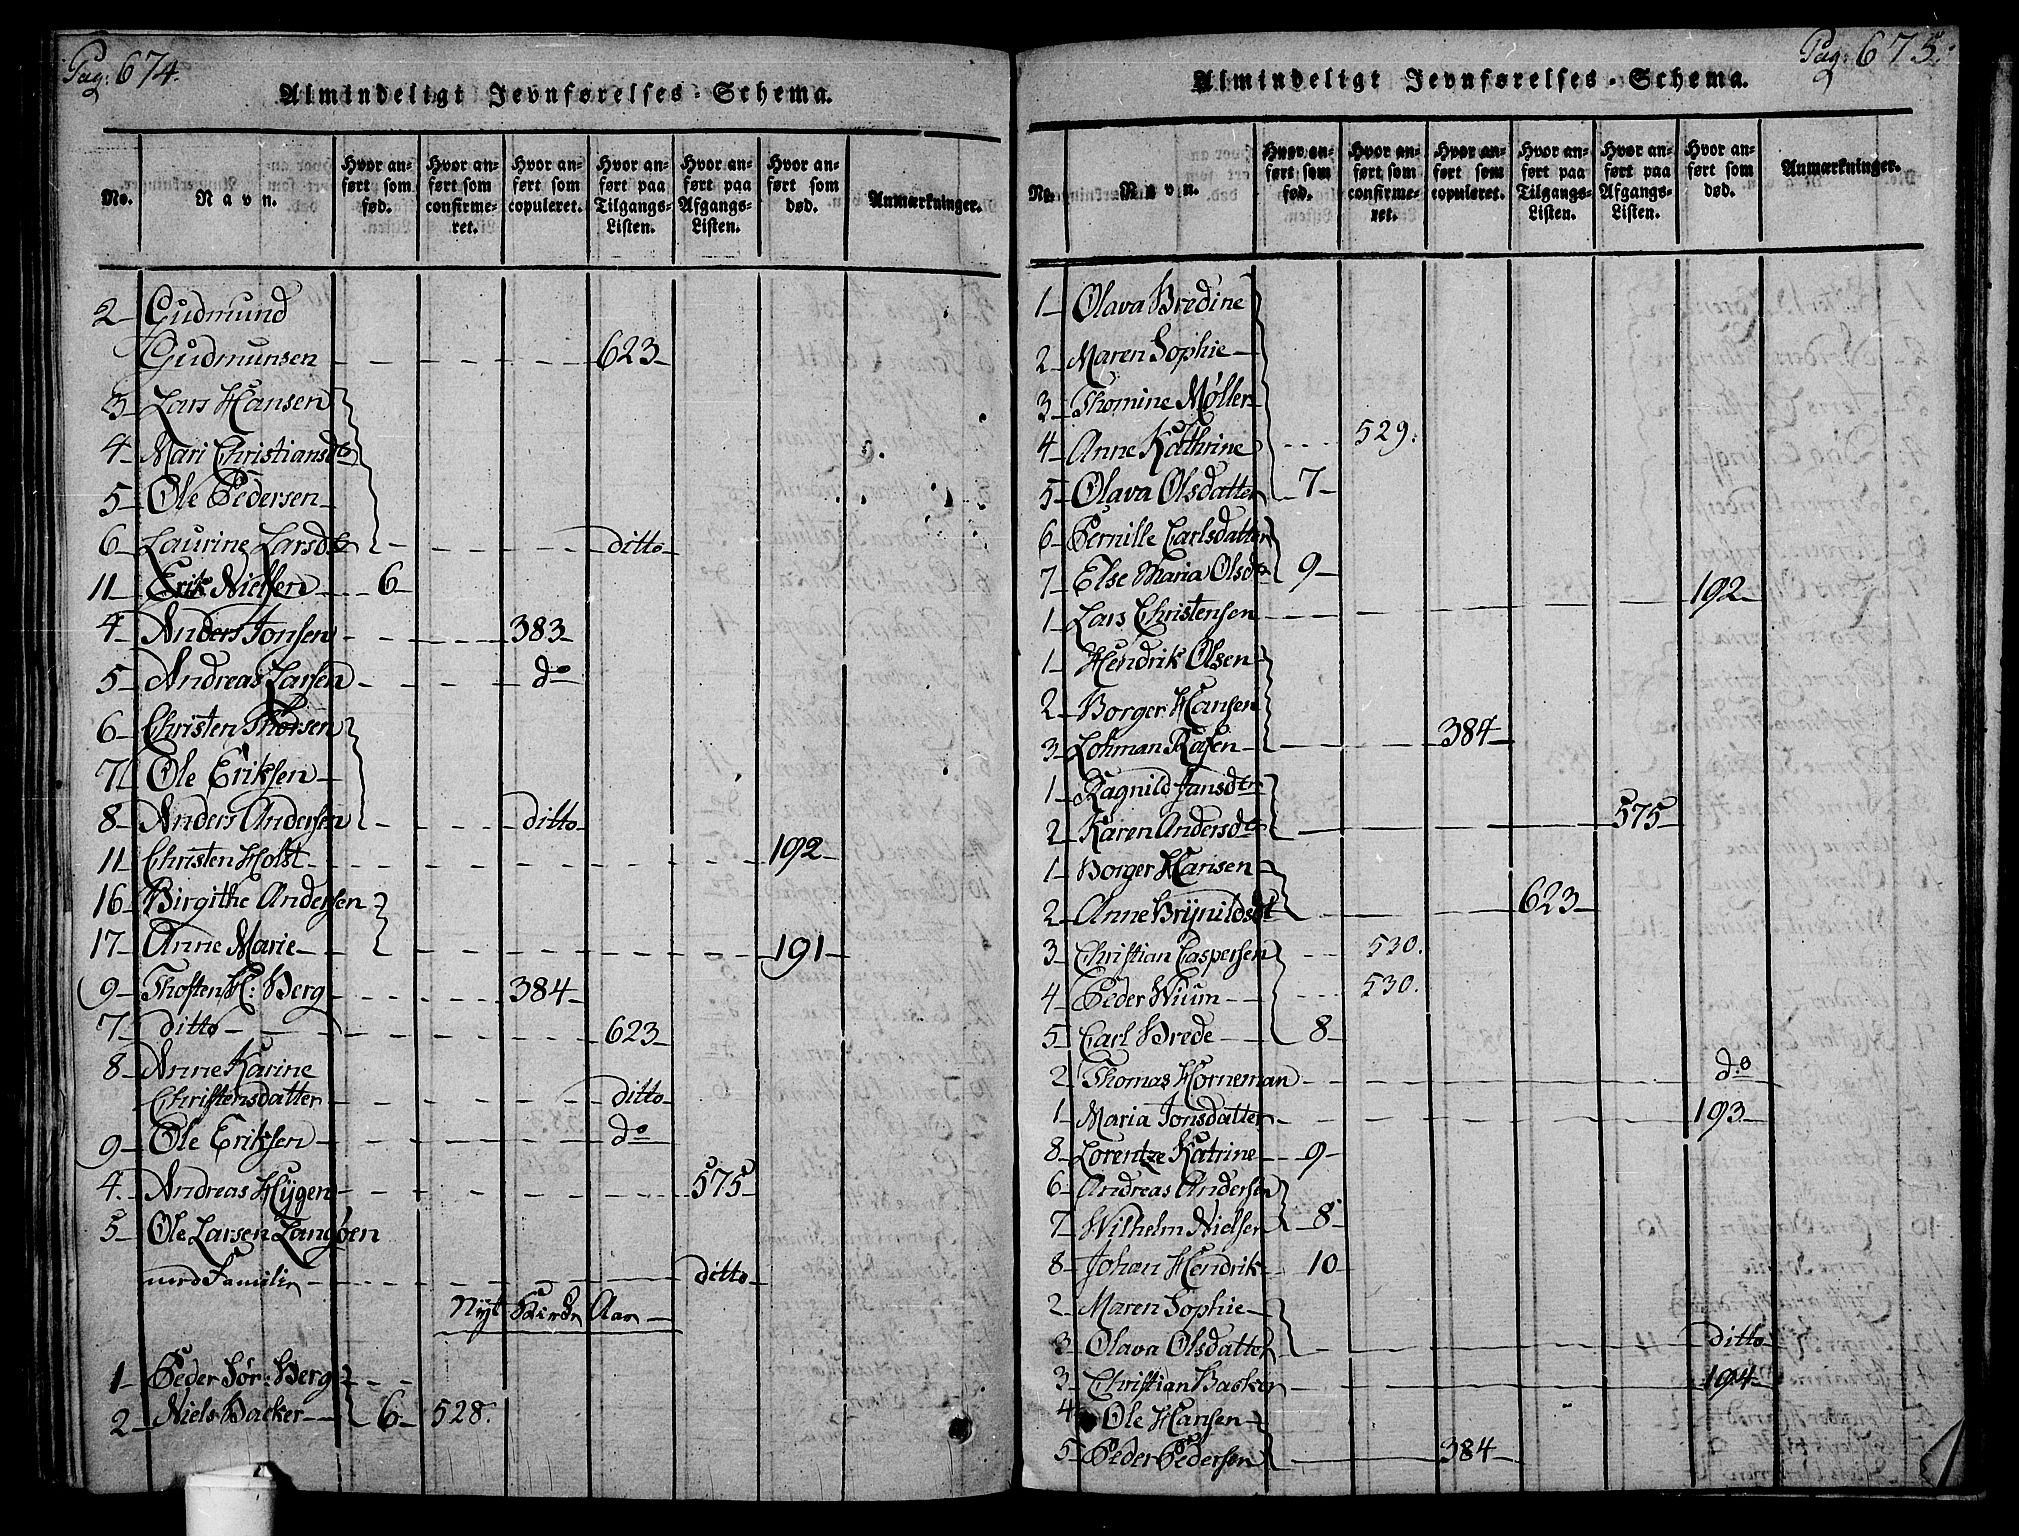 Pag: 674.
Almindeligt Jevnførelses-Schema.
No. Navn. Hvor anført som fød. Hvor anført som confirmeret. Hvor anført som copuleret. Hvor anført paa Tilgangs-Listen. Hvor anført paa Afgangs-Listen. Hvor anført som død. Anmærkninger.
2 Gudmund
Gudmunsen 623
3 Lars Hansen
4 Mari Christiansdtr
5 Ole Pedersen
6 Laurine Larsdtr ditto
11 Erik Nielsen 6
4 Anders Jonsen 383
5 Andreas Larsen do
6 Christen Thorsen
7 Ole Eriksen
8 Anders Andersen ditto
11 Christen Holst 192
16 Birgithe Andersen
17 Anne Marie 191
9 Thosten H: Berg 384
7 ditto 623
8 Anne Karine
Christensdatter ditto
9 Ole Eriksen do
4. Andreas Hÿgen 575
5 Ole Larsen Langøen
med Familie ditto
Nÿt Kirke Aar
1 Peder Sør: Berg
2 Niels Backer 6 528.
Pag: 675.
Almindeligt Jevnførelses-Schema.
No. Navn. Hvor anført som fød. Hvor anført som confirmeret. Hvor anført som copuleret. Hvor anført paa Tilgangs-Listen. Hvor anført paa Afgangs-Listen. Hvor anført som død. Anmærkninger.
1 Olava Bredine
2 Maren Sophie
3 Thomine Møller
4 Anne Kathrine 529.
5 Olava Olsdatter 7
6 Pernille Carlsdatter
7 Else Maria Olsdtr 9
1 Lars Christensen 192
1 Hendrik Olsen
2 Borger Hansen
3 Lohman Rasen 384
1 Ragnild Jansdtr
2 Karen Andersdtr 575
1 Borger Hansen
2 Anne Brÿnildsdt 623
3 Christian Caspersen 530.
4 Peder Wium 530.
5 Carl Brede 8
2 Thomas Horneman do
1 Maria Jonsdatter 193
8 Lorentze Katrine 9
6 Andreas Andersen
7 Wilhelm Nielsen 8
8 Johan Hendrik 10
2 Maren Sophie
3 Olava Olsdatter ditto
3 Christian Backer 194
4 Ole Hansen
5 Peder Pedersen 384